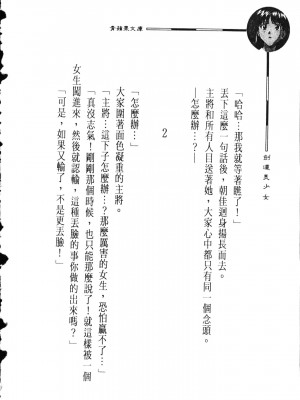 青蘋果文庫
劍道美少女
「哈哈…那我就等著瞧了！」
丟下這麼一句話後，朝佳迴身揚長而去。
主將和所有人目送著她，大家心中都只有同一個念頭。
──怎麼辦…？──
2
「怎麼辦…」
大家圍著面色凝重的主將。
「主將…這下子怎麼辦…？那麼厲害的女生，恐怕贏不了…」
「真沒志氣！剛剛那個時候，也只能那麼說了！就這樣被一個
女生闖進來，然後就認輸，這種丟臉的事你做的出來嗎？」
「可是，如果又輸了，不是更丟臉！」